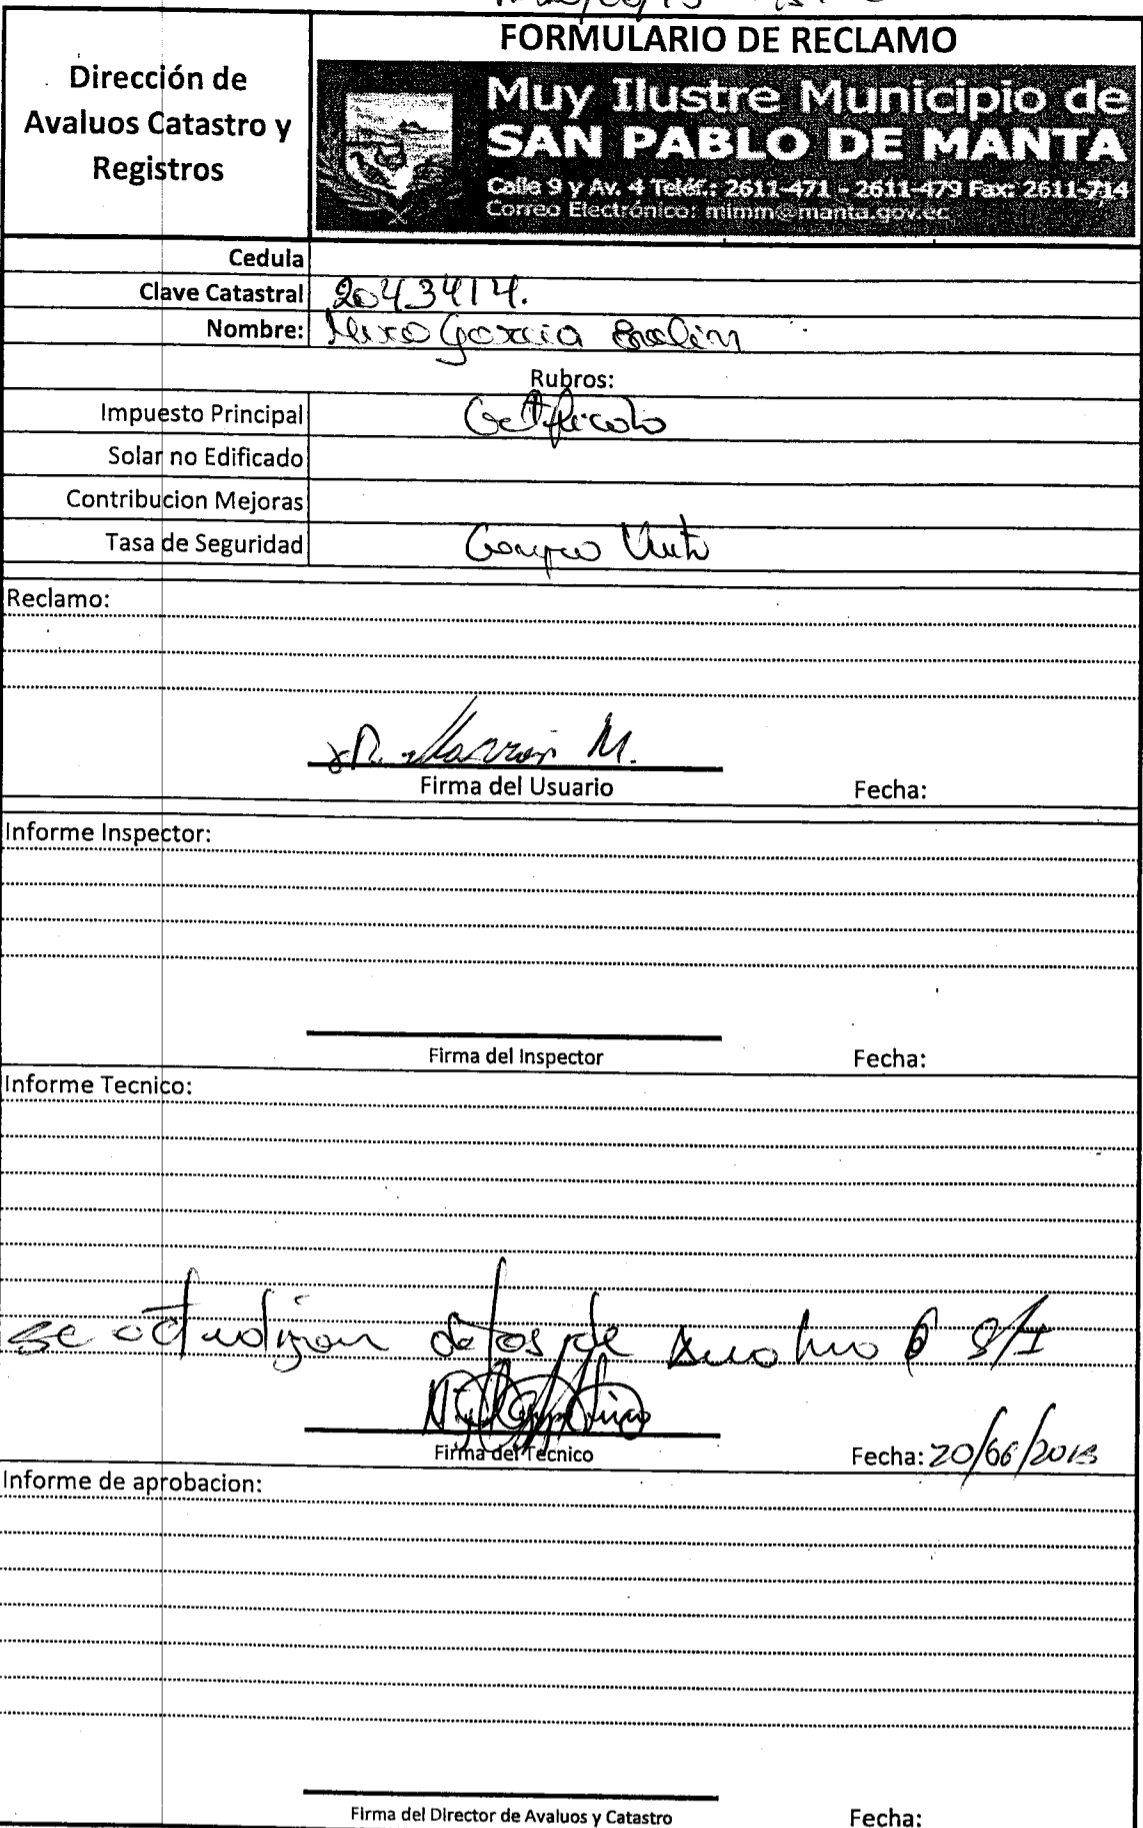 FORMULARIO DE RECLAMO
Dirección de
Avaluos Catastro y
Registros
Muy Ilustre Municipio de
SAN PABLO DE MANTA
Calle 9 y Av. 4 Teléf.: 2611-471 - 2611-479 Fax: 2611-714
Correo Electrónico: mimm@manta.gov.ec
Cedula
Clave Catastral 2043414.
Nombre: Garcia
Rubros:
Impuesto Principal Certificado
Solar no Edificado
Contribucion Mejoras
Tasa de Seguridad
Reclamo:
M.
Firma del Usuario Fecha:
Informe Inspector:
Firma del Inspector Fecha:
Informe Tecnico:
se actualizan datos de
Firma del Tecnico Fecha: 20/06/2013
Informe de aprobacion:
Firma del Director de Avaluos y Catastro Fecha: